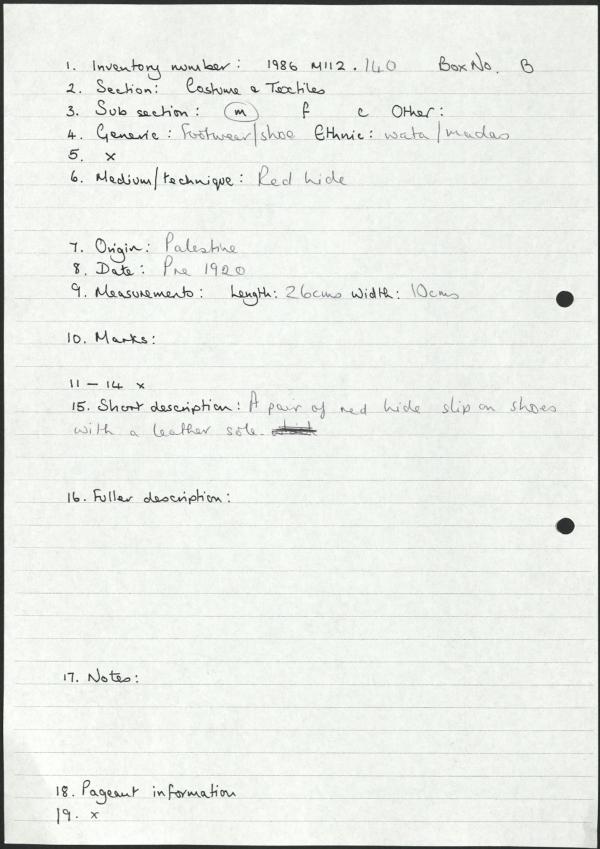 1. Inventory number: 1986 M112.140 Box No. B
2. Section: Costume & Textiles
3. Sub section: m f c Other:
4. Generic: Footwear/shoe Ethnic: wata/madas
5. x
6. Medium/technique: Red hide
7. Origin: Palestine
8. Date: Pre 1920
9. Measurements: Length: 26cms Width: 10cms
10. Marks:
11 – 14 x
15. Short description: A pair of red hide slip on shoes
with a leather sole.
16. Fuller description:
17. Notes:
18. Pageant information
19. x